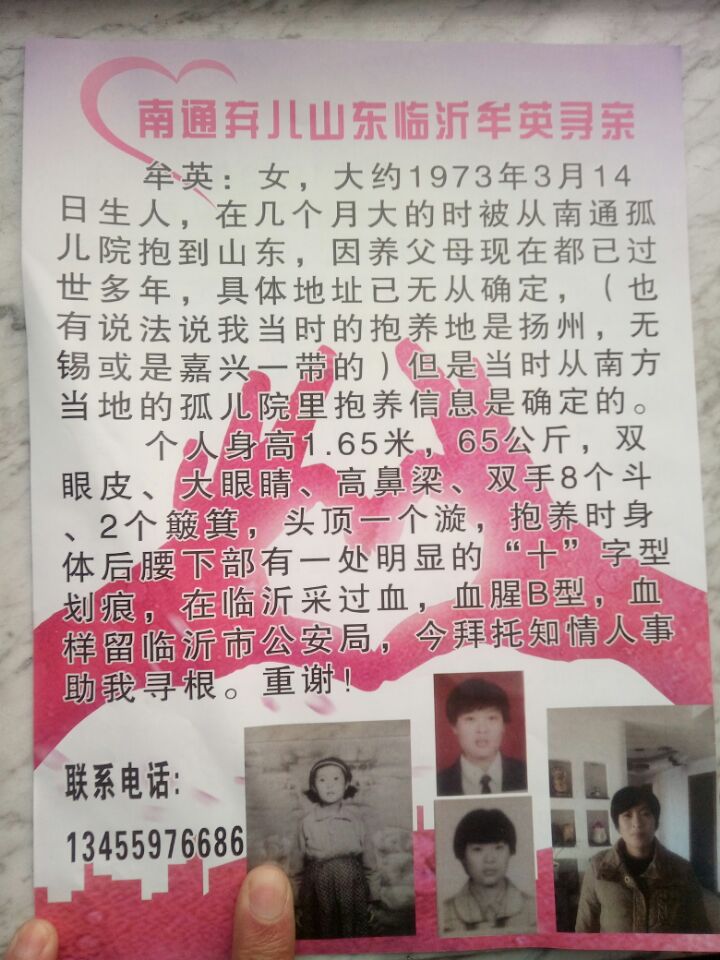 南通弃儿山东临沂牟英寻亲
牟英：女，大约1973年3月14
日生人，在几个月大的时被从南通孤
儿院抱到山东，因养父母现在都已过
世多年，具体地址已无从确定，（也
有说法说我当时的抱养地是扬州，无
锡或是嘉兴一带的）但是当时从南方
当地的孤儿院里抱养信息是确定的。
个人身高1.65米，65公斤，双
眼皮、大眼睛、高鼻梁、双手8个斗
、2个簸箕，头顶一个漩，抱养时身
体后腰下部有一处明显的“十”字型
划痕，在临沂采过血，血腥B型，血
样留临沂市公安局，今拜托知情人事
助我寻根。重谢！
联系电话：
13455976686